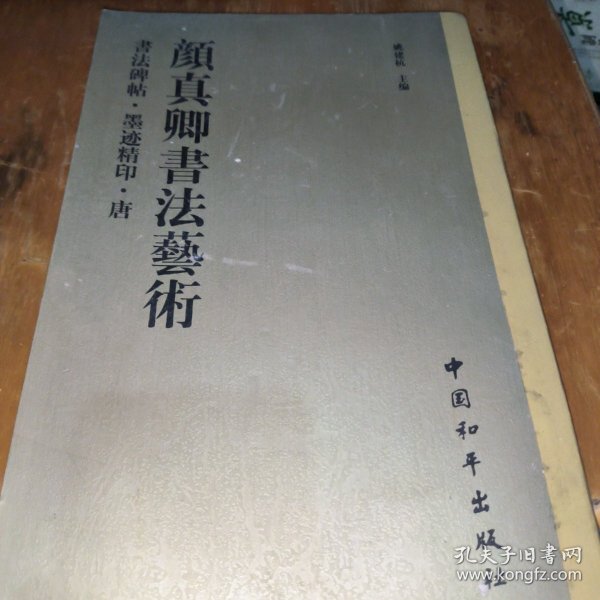 顔真卿書法藝術
書法碑帖·墨迹精印·唐
姚建杭 主编
中国和平出版社
孔夫子旧书网
www.kongfz.com